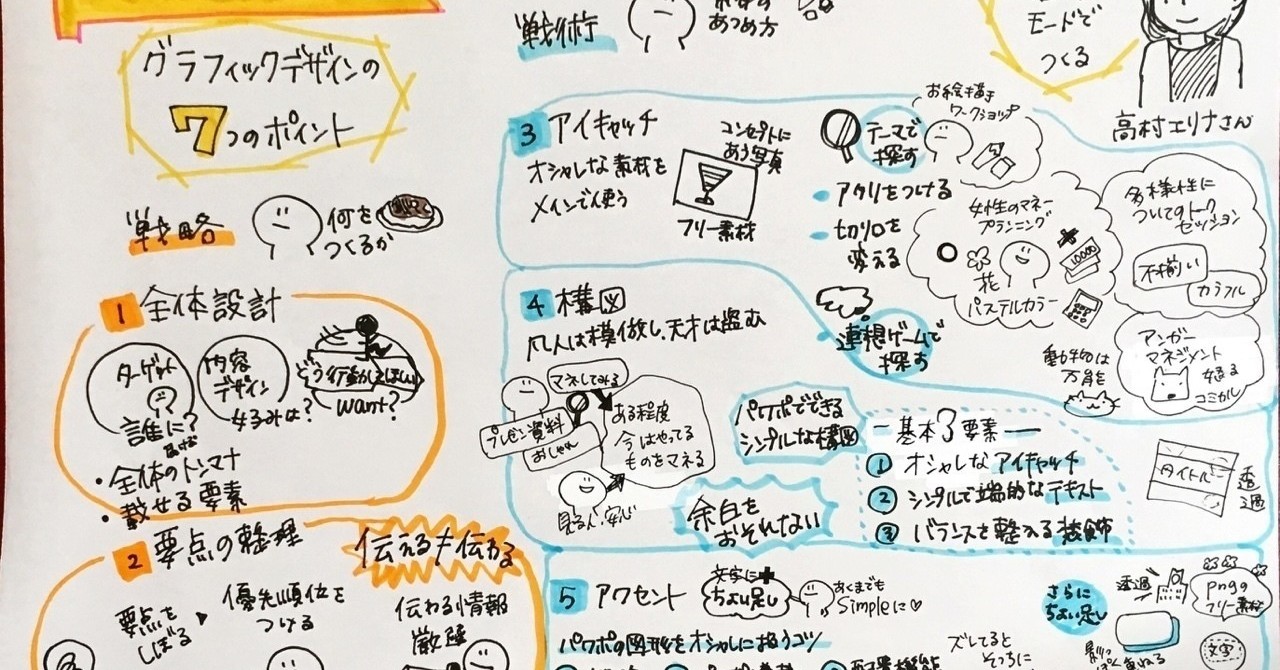 グラフィックデザインの
7つのポイント
戦略
何を
つくるか
1 全体設計
ターゲット
誰に?
内容
デザイン
好みは?
どう行動してほしい
want?
・全体のトンマナ
・載せる要素
2 要点の整理
伝える≠伝わる
要点を
しぼる
優先順位を
つける
伝わる情報
厳選
戦術
あつめ方
モードで
つくる
高村エリナさん
3 アイキャッチ
オシャレな素材を
メインで使う
コンセプトに
あう写真
フリー素材
テーマで
探す
お絵描き
ワークショップ
・アタリをつける
・切り口を
変える
女性のマネー
プランニング
花
10000
パステルカラー
多様性に
ついてのトーク
セッション
不揃い
カラフル
・連想ゲームで
探す
動物は
万能
アンガー
マネジメント
怒る
コミカル
4 構図
凡人は模倣し、天才は盗む
マネしてみる
プレゼン資料
おしゃれ
ある程度
今はやってる
ものをマネる
見る人、安心
パワポでできる
シンプルな構図
余白を
おそれない
基本3要素
① オシャレなアイキャッチ
② シンプルで端的なテキスト
③ バランスを整える装飾
タイトル
透過
5 アクセント
文字に+
ちょい足し
あくまでも
Simpleに♡
パワポの図形をオシャレに扱うコツ
さらに
ちょい足し
透過
pngの
フリー素材
文字
ズレてると
そっちに